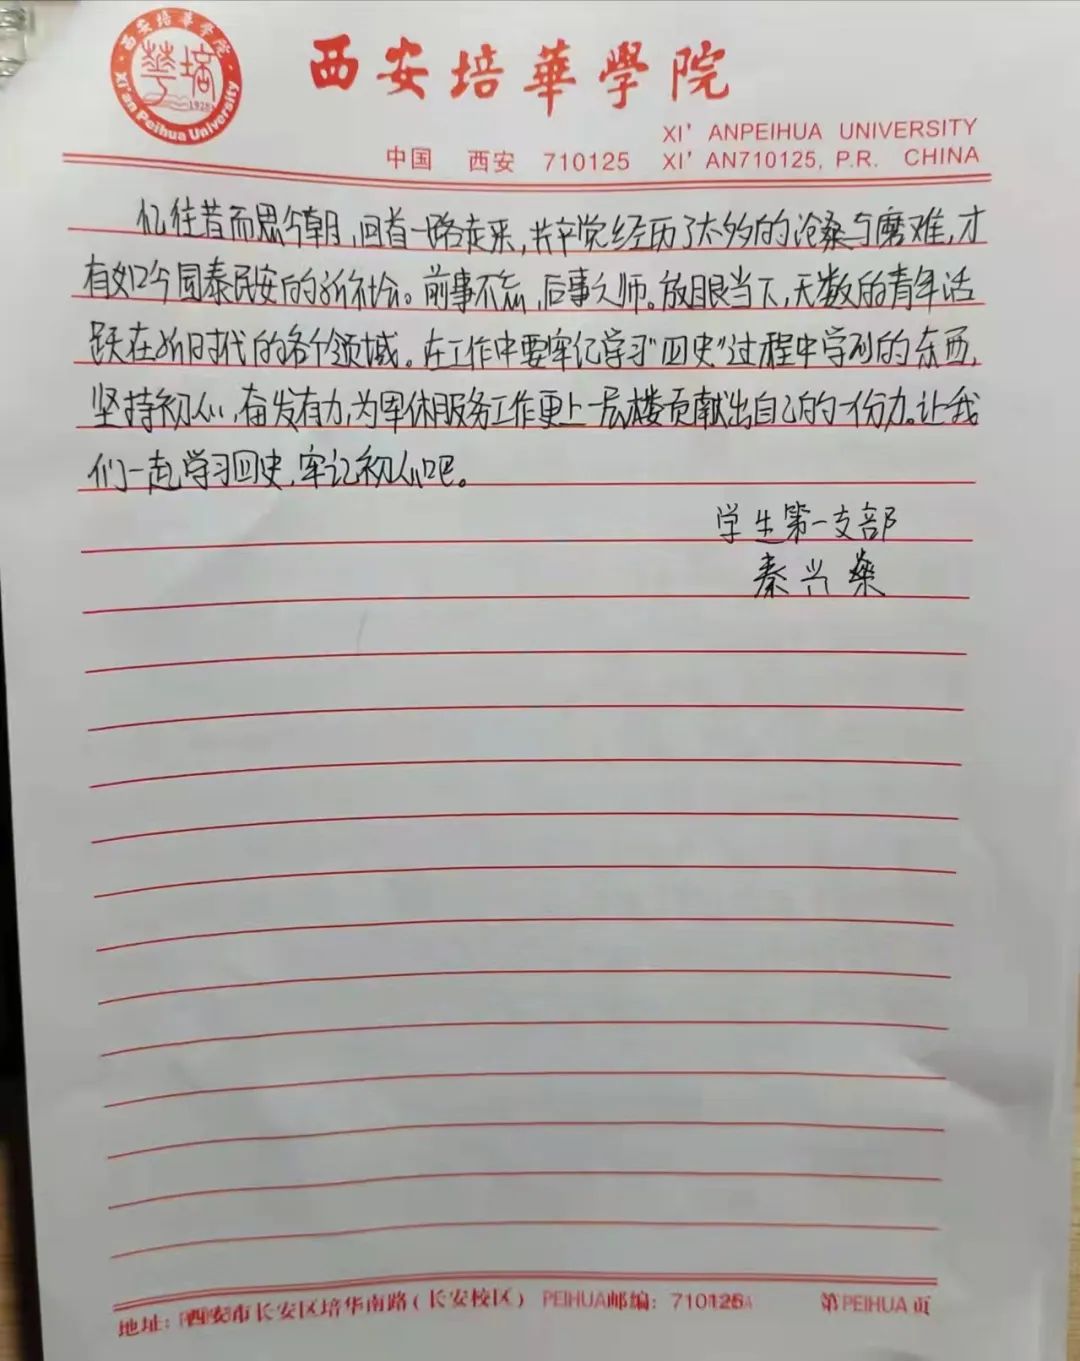 西安培華学院
Xi'an Peihua University
1928
西安培華學院
XI' ANPEIHUA UNIVERSITY
中国 西安 710125 XI' AN710125, P.R. CHINA
忆往昔而思今朝,回首一路走来,共产党经历了太多的沧桑与磨难,才
有如今国泰民安的新社会。前事不忘,后事之师。放眼当下,无数的青年活
跃在新时代的各个领域。在工作中要牢记学习"四史"过程中学到的东西,
坚持初心,奋发有力,为退休服务工作更上一层楼贡献出自己的一份力。让我
们一起学习四史,牢记初心吧。
学生第一支部
秦兴燊
地址: 西安市长安区培华南路(长安校区) PEIHUA邮编: 710125 第PEIHUA页